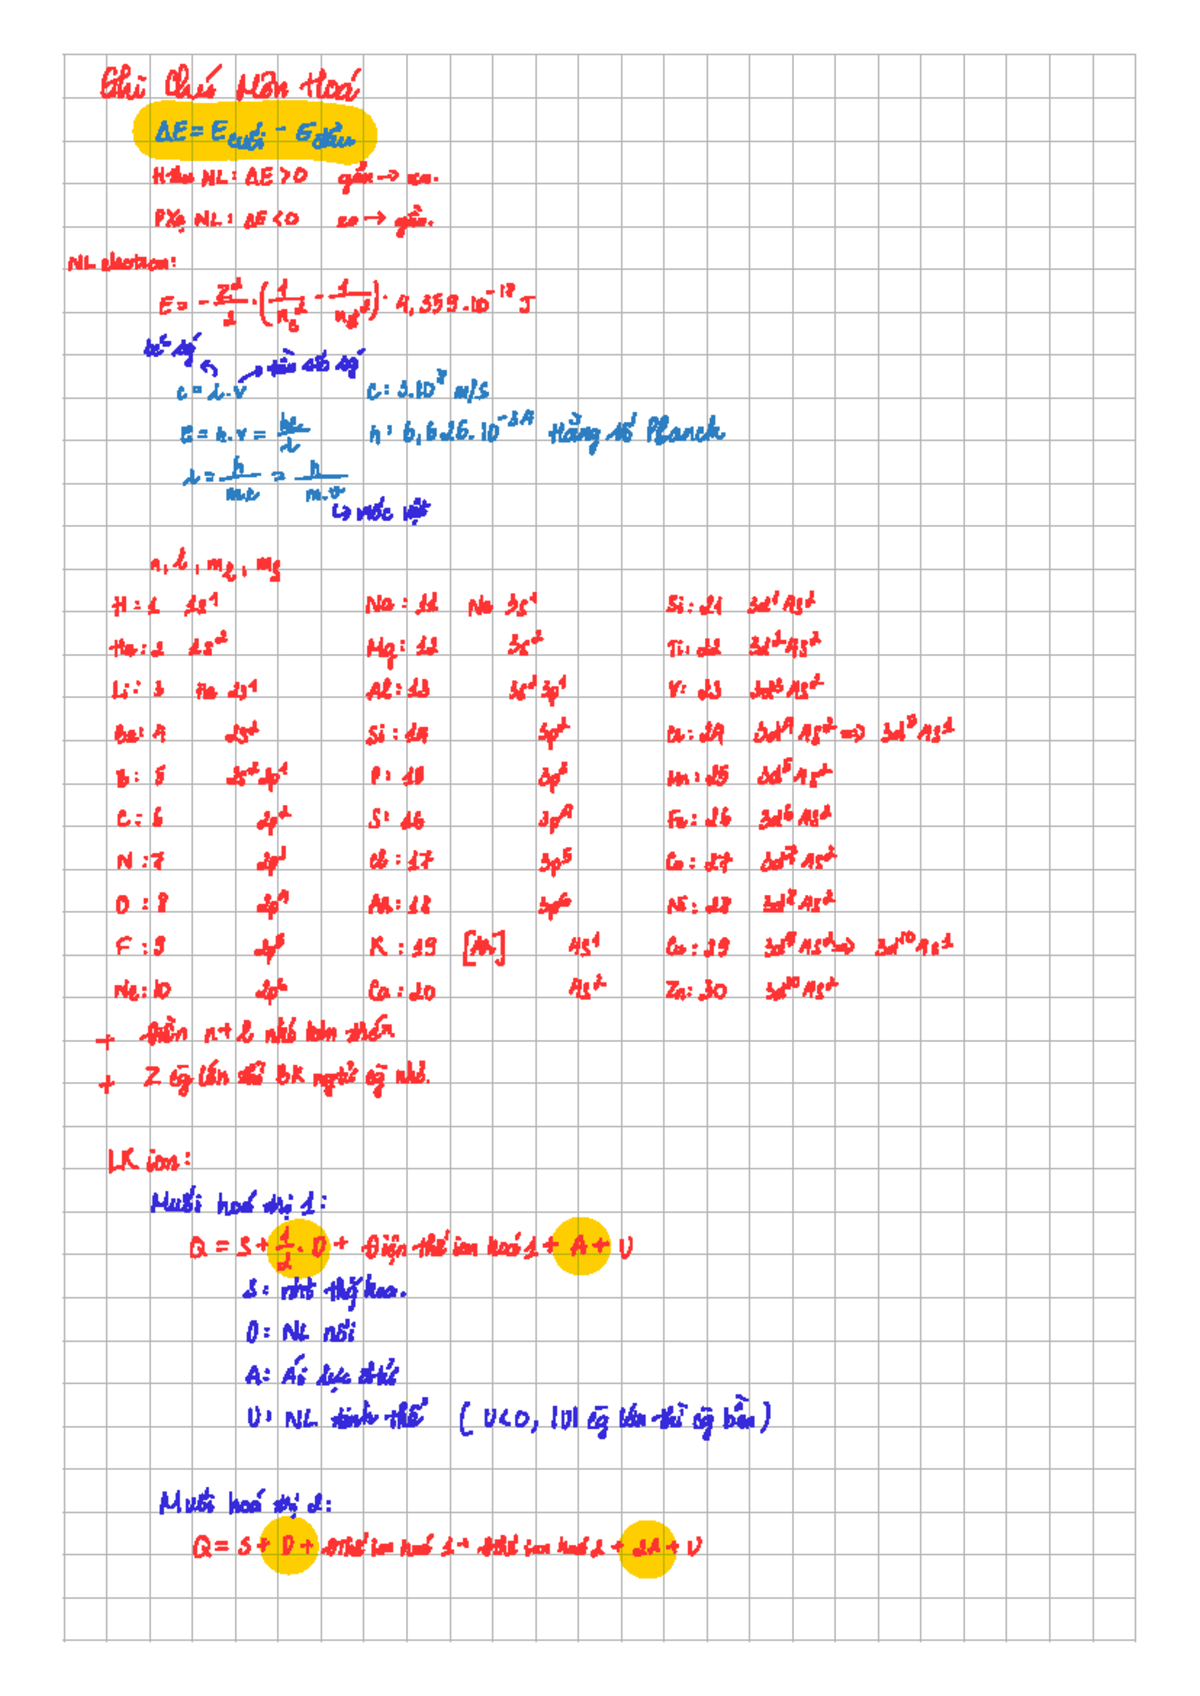 Ghi Chú Môn Hoá
ΔE = E cuối - E đầu
H thu NL: ΔE > 0 gần → xa.
PXạ NL: ΔE < 0 xa → gần.
NL electron:
E = - Z²/2 · (1/n_c² - 1/n_đ²) · 4,359.10⁻¹⁸ J
bc sg tần số sg
c = λ.v C: 3.10⁸ m/s
E = h.v = hc/λ h: 6,626.10⁻³⁴ Hằng số Planck
λ = h/m.c = h/m.v
↳ vtốc vật
n, l, m_l, m_s
H: 1 1s¹ Na: 11 Ne 3s¹ Si: 21 3d¹4s²
He: 2 1s² Mg: 12 3s² Ti: 22 3d²4s²
Li: 3 He 2s¹ Al: 13 3s²3p¹ V: 23 3d³4s²
Be: 4 2s² Si: 14 3p² Cr: 24 3d⁴4s² => 3d⁵4s¹
B: 5 2s²2p¹ P: 15 3p³ Mn: 25 3d⁵4s²
C: 6 2p² S: 16 3p⁴ Fe: 26 3d⁶4s²
N: 7 2p³ Cl: 17 3p⁵ Co: 27 3d⁷4s²
O: 8 2p⁴ AR: 18 3p⁶ Ni: 28 3d⁸4s²
F: 9 2p⁵ K: 19 [AR] 4s¹ Cu: 29 3d⁹4s² => 3d¹⁰4s¹
Ne: 10 2p⁶ Ca: 20 4s² Zn: 30 3d¹⁰4s²
+ điền n+l nhỏ hơn
+ Z cg lớn thì BK ngtử cg nhỏ.
LK ion:
Muối hoá trị 1:
Q = S + 1/2 . D + Điện thế ion hoá 1 + A + U
S: nht thăg hoa.
D: NL nối
A: Ái lực
U: NL tinh thể ( U<0, |U| cg lớn thì cg bền )
Muối hoá trị 2:
Q = S + D + Đ thế ion hoá 1 + Đ thế ion hoá 2 + 2A + U